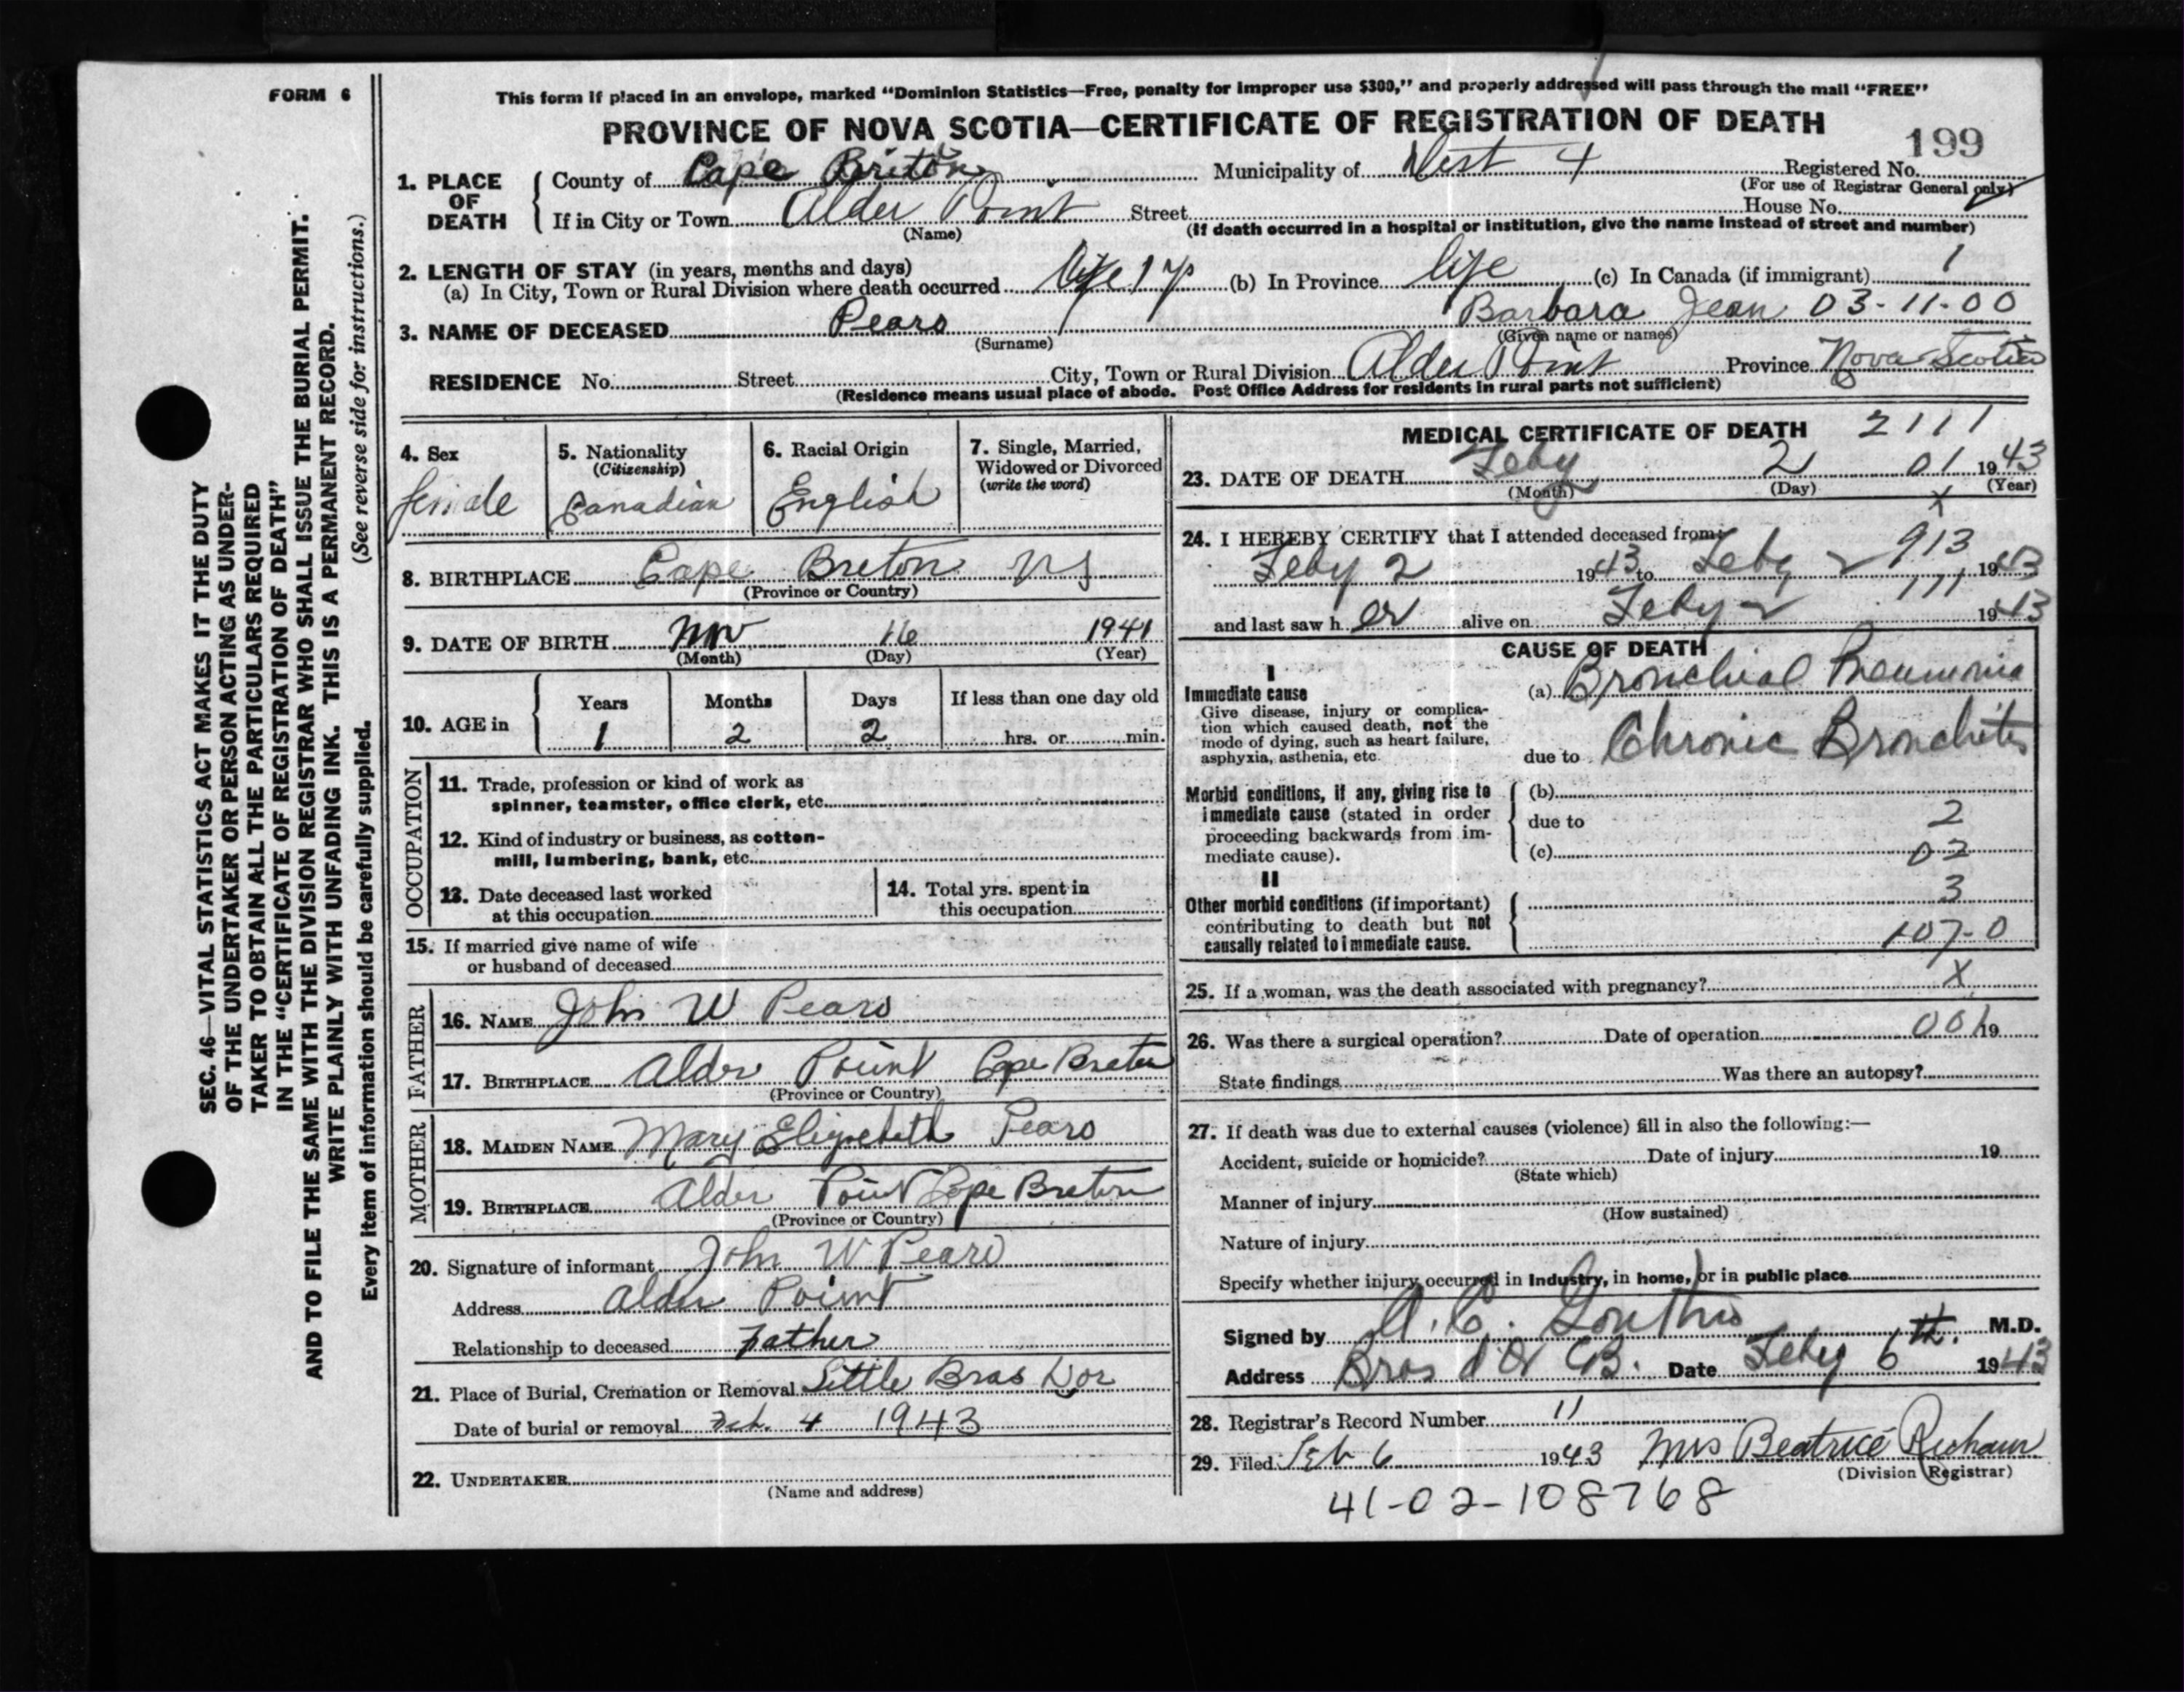 FORM 6
This form if placed in an envelope, marked “Dominion Statistics—Free, penalty for improper use $300,” and properly addressed will pass through the mail “FREE”
PROVINCE OF NOVA SCOTIA—CERTIFICATE OF REGISTRATION OF DEATH
199
1. PLACE OF DEATH
County of Cape Briton Municipality of Dist 4 Registered No.
(For use of Registrar General only)
If in City or Town Alder Point Street House No.
(Name) (If death occurred in a hospital or institution, give the name instead of street and number)
2. LENGTH OF STAY (in years, months and days)
(a) In City, Town or Rural Division where death occurred life 1 yr (b) In Province life (c) In Canada (if immigrant) 1
3. NAME OF DECEASED Pears Barbara Jean 03-11-00
(Surname) (Given name or names)
RESIDENCE No. Street City, Town or Rural Division Alder Point Province Nova Scotia
(Residence means usual place of abode. Post Office Address for residents in rural parts not sufficient)
4. Sex
female
5. Nationality
(Citizenship)
Canadian
6. Racial Origin
English
7. Single, Married,
Widowed or Divorced
(write the word)
8. BIRTHPLACE Cape Breton NS
(Province or Country)
9. DATE OF BIRTH Nov 16 1941
(Month) (Day) (Year)
10. AGE in
Years Months Days If less than one day old
1 2 2 hrs. or min.
OCCUPATION
11. Trade, profession or kind of work as
spinner, teamster, office clerk, etc.
12. Kind of industry or business, as cotton-
mill, lumbering, bank, etc.
13. Date deceased last worked
at this occupation
14. Total yrs. spent in
this occupation
15. If married give name of wife
or husband of deceased
FATHER
16. NAME John W Pears
17. BIRTHPLACE Alder Point Cape Breton
(Province or Country)
MOTHER
18. MAIDEN NAME Mary Elizebeth Pears
19. BIRTHPLACE Alder Point Cape Breton
(Province or Country)
20. Signature of informant John W Pears
Address Alder Point
Relationship to deceased Father
21. Place of Burial, Cremation or Removal Little Bras Dor
Date of burial or removal Feb. 4 1943
22. UNDERTAKER
(Name and address)
MEDICAL CERTIFICATE OF DEATH 2111
23. DATE OF DEATH Feby 2 01 1943
(Month) (Day) (Year)
x
24. I HEREBY CERTIFY that I attended deceased from: 913
Feby 2 1943 to Feby 2 1943
111
and last saw h er alive on Feby 2 1943
CAUSE OF DEATH
I
Immediate cause
Give disease, injury or complica-
tion which caused death, not the
mode of dying, such as heart failure,
asphyxia, asthenia, etc.
(a) Bronchial Pneumonia
due to Chronic Bronchitis
Morbid conditions, if any, giving rise to
immediate cause (stated in order
proceeding backwards from im-
mediate cause).
(b)
due to 2
(c) 02
II
Other morbid conditions (if important)
contributing to death but not
causally related to immediate cause.
3
107-0
25. If a woman, was the death associated with pregnancy? X
26. Was there a surgical operation? Date of operation 001 19
State findings Was there an autopsy?
27. If death was due to external causes (violence) fill in also the following:—
Accident, suicide or homicide? Date of injury 19
(State which)
Manner of injury
(How sustained)
Nature of injury
Specify whether injury occurred in Industry, in home, or in public place
Signed by M.D.
Address Bras d'Or CB. Date Feby 6th. 1943
28. Registrar's Record Number 11
29. Filed Feb 6 1943 Mrs Beatrice
(Division Registrar)
41-02-108768
SEC. 46—VITAL STATISTICS ACT MAKES IT THE DUTY
OF THE UNDERTAKER OR PERSON ACTING AS UNDER-
TAKER TO OBTAIN ALL THE PARTICULARS REQUIRED
IN THE “CERTIFICATE OF REGISTRATION OF DEATH”
AND TO FILE THE SAME WITH THE DIVISION REGISTRAR WHO SHALL ISSUE THE BURIAL PERMIT.
WRITE PLAINLY WITH UNFADING INK. THIS IS A PERMANENT RECORD.
(See reverse side for instructions.)
Every item of information should be carefully supplied.